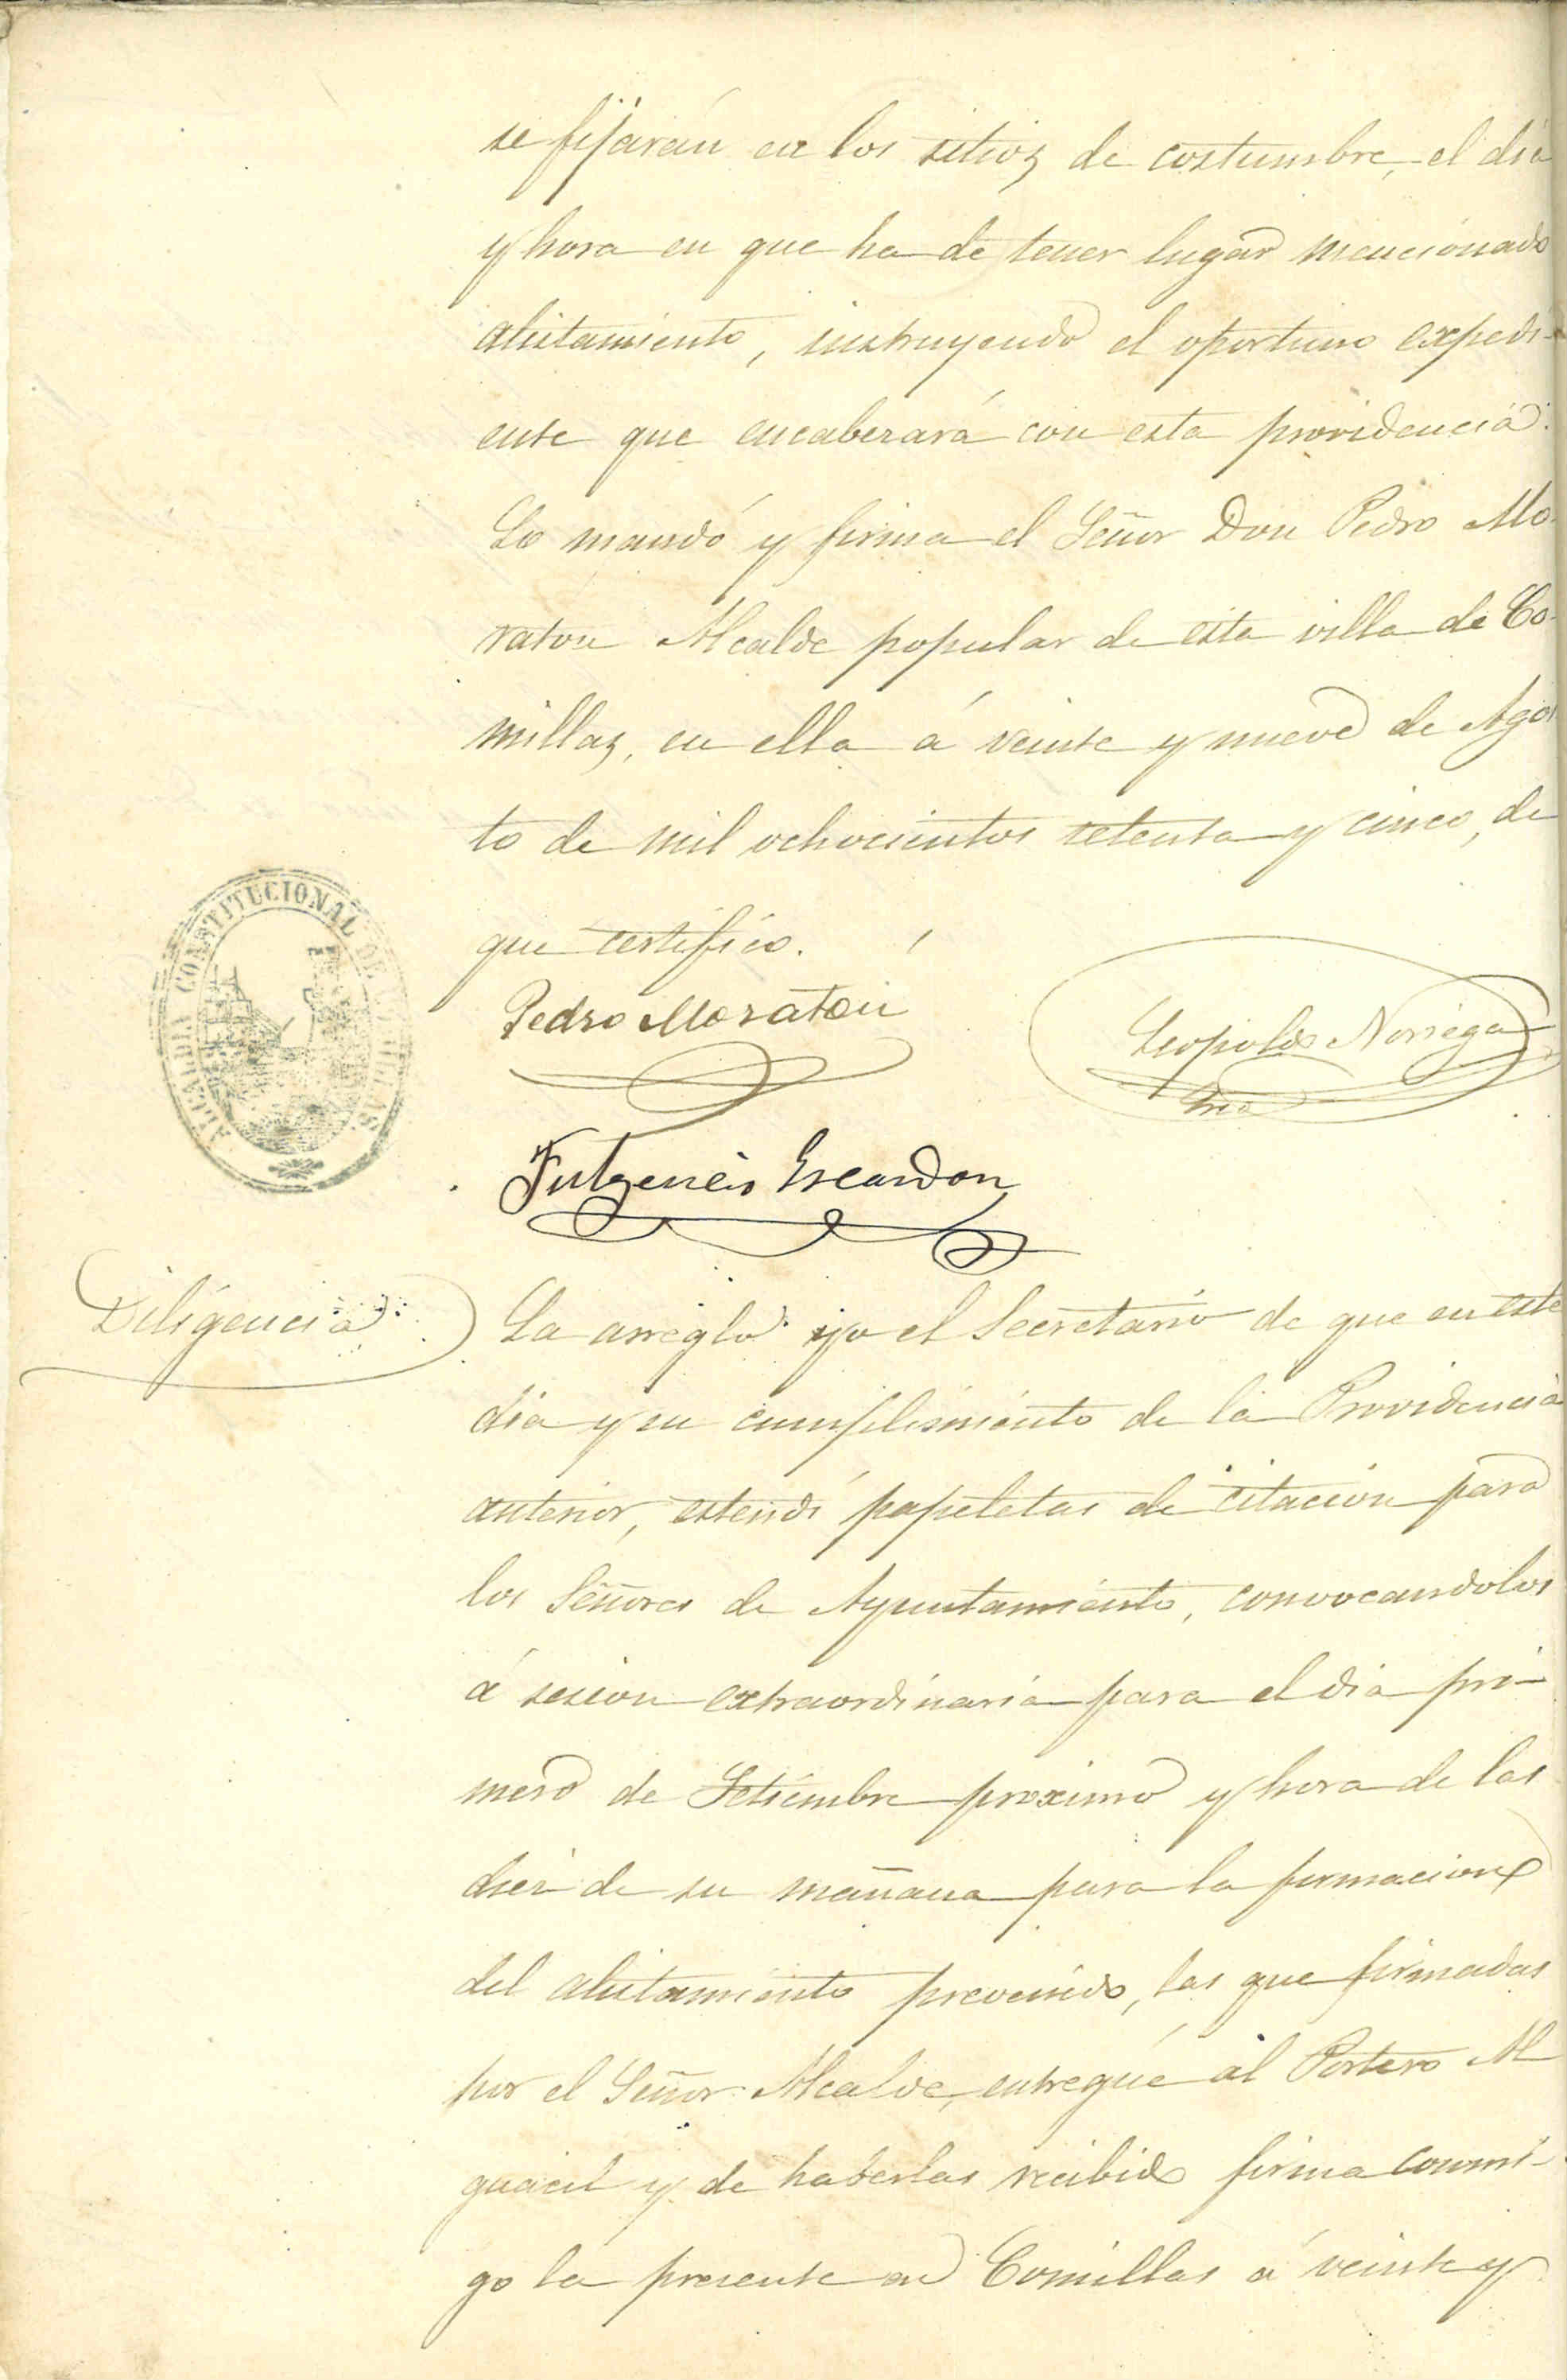 se fijarán en los sitios de costumbre, el dia
y hora en que ha de tener lugar mencionado
alistamiento, instruyendo el oportuno expedi-
ente que encabezará con esta providencia.
Lo mandó y firma el Señor Don Pedro Mo-
raton Alcalde popular de esta villa de Co-
millas, en ella á veinte y nueve de Agos
to de mil ochocientos setenta y cinco, de
que certifico.
ALCALDIA CONSTITUCIONAL DE COMILLAS
Pedro Moraton
Leopoldo Noriega
Srio
Fulgencio Escandon
Diligencia
La arreglo yo el Secretario de que en este
dia y en cumplimiento de la Providencia
anterior, estendí papeletas de citacion para
los Señores de Ayuntamiento, convocandolos
á sesion extraordinaria para el dia pri-
mero de Setiembre proximo y hora de las
diez de su mañana para la formacion
del alistamiento prevenido, las que firmadas
por el Señor Alcalde, entregué al Portero Al
guacil y de haberlas recibido firma conmi-
go la presente en Comillas á veinte y